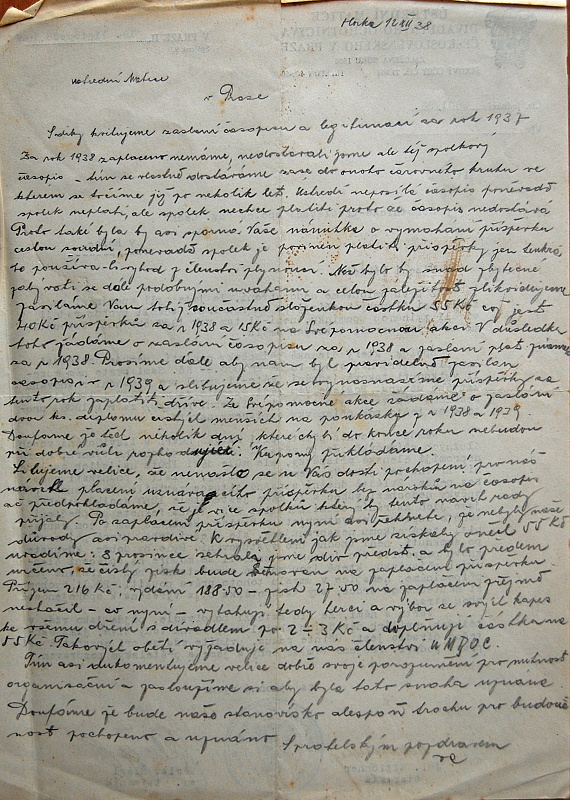 Horka 12/XII 38
ústřední Matice
v Praze
S díky kvitujeme zaslání časopisu a legitimací za rok 1937
Za rok 1938 zaplaceno nemáme, nedostávali jsme ale též spolkový
časopis - tím se vlastně dostáváme zase do onoho čarovného kruhu ve
kterém se točíme již po několik let. Ústředí neposílá časopis poněvadž
spolek neplatí, ale spolek nechce platiti proto že časopis nedostává
Proto také byla by asi sporna Vaše námitka o vymáhání příspěvku
cestou soudní, poněvadž spolek je povinen platiti příspěvky jen tenkrát
to používá-li výhod z členství plynoucí. Než bylo by snad zbytečné
zabývati se dále podobnými úvahami a celou záležitost zlikvidujeme
zasíláme Vám totiž současně složenkou částku 55 Kč což jest
40 Kč příspěvků za r 1938 a 15 Kč na Svépomocnou akci V důsledku
toho žádáme o zaslání časopisu za r 1938 a zaslání
za r 1938 Prosíme dále aby nám byl pravidelně zasílán
časopis v r 1939 a slibujeme že se vynasnažíme příspěvky za
tento rok zaplatiti dříve. Ze Svépomocné akce žádáme o zaslání
dvou ks. diplomů cizích menších na poukázky z r 1938 a 1939
Doufáme že těch několik dní které chybí do konce roku nebudou
při dobré vůli rozhodující. Kupony přikládáme.
Litujeme velice, že nenašlo se u Vás dosti pochopení pro náš
návrh placení uznávacího příspěvku bez nároků na časopis
ač předpokládáme, že je více spolků které by tento návrh rády
přijaly. Po zaplacení příspěvku nyní asi řeknete, že nebyly naše
důvody asi pravdivé. K vysvětlení jak jsme získaly oněch 55 Kč
uvádíme: 8 prosince sehrála jsme div. předst. a bylo předem
určeno, že čistý zisk bude věnován na zaplacení příspěvku
Příjem 216 Kč, vydání 188.50 - zisk 27.50 na zaplacení zřejmě
nestačil - co nyní - vytahují tedy herci a výbor ze svých kapes
ke všemu dření s divadlem po 2-3 Kč a doplňují částku na
55 Kč Takových obětí vyžaduje na nás členství UMDOC.
Tím asi dokumentujeme velice dobře svoje porozumění pro nutnost
organisační a zasloužíme si aby byla tato snaha uznána
Doufáme že bude naše stanovisko alespoň trochu pro budouc-
nost pochopeno a uznáno S přátelským pozdravem